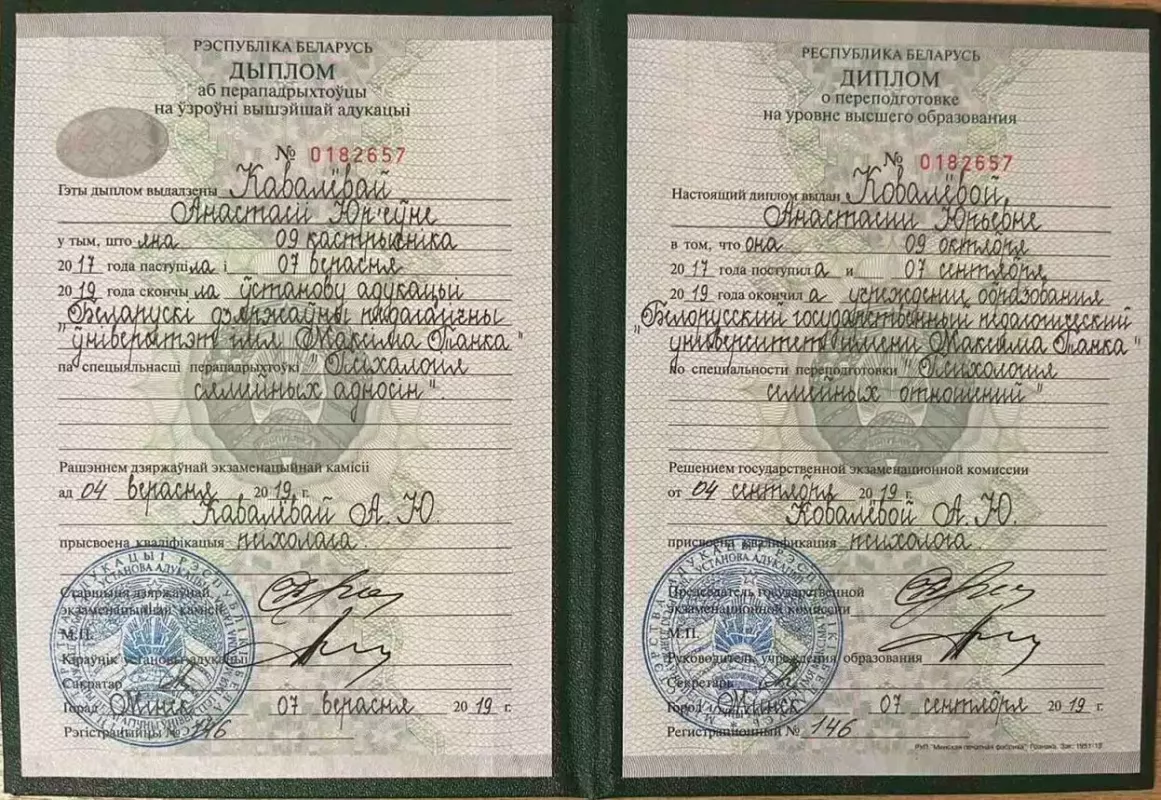 РЭСПУБЛІКА БЕЛАРУСЬ
ДЫПЛОМ
аб перападрыхтоўцы
на ўзроўні вышэйшай адукацыі
№ 0182657
Гэты дыплом выдадзены Кавалёвай
Анастасіі Юр'еўне
у тым, што яна 09 кастрычніка
2017 года паступіла і 07 верасня
2019 года скончыла ўстанову адукацыі
"Беларускі дзяржаўны педагагічны
ўніверсітэт імя Максіма Танка"
па спецыяльнасці перападрыхтоўкі "Псіхалогія
сямейных адносін".
Рашэннем дзяржаўнай экзаменацыйнай камісіі
ад 04 верасня 2019 г.
Кавалёвай А.Ю.
прысвоена кваліфікацыя псіхолага.
Старшыня дзяржаўнай
экзаменацыйнай камісіі
М.П.
Кіраўнік установы адукацыі
Сакратар
Горад Мінск 07 верасня 2019 г.
Рэгістрацыйны № 146
РЕСПУБЛИКА БЕЛАРУСЬ
ДИПЛОМ
о переподготовке
на уровне высшего образования
№ 0182657
Настоящий диплом выдан Ковалёвой,
Анастасии Юрьевне
в том, что она 09 октября
2017 года поступила и 07 сентября
2019 года окончила учреждении образования
"Белорусский государственный педагогический
университет имени Максима Танка"
по специальности переподготовки "Психология
семейных отношений"
Решением государственной экзаменационной комиссии
от 04 сентября 2019 г.
Ковалёвой А.Ю.
присвоена квалификация психолога.
Председатель государственной
экзаменационной комиссии
М.П.
Руководитель учреждения образования
Секретарь
Город Минск 07 сентября 2019 г.
Регистрационный № 146
РУП "Минская печатная фабрика" Гознака. Зак.